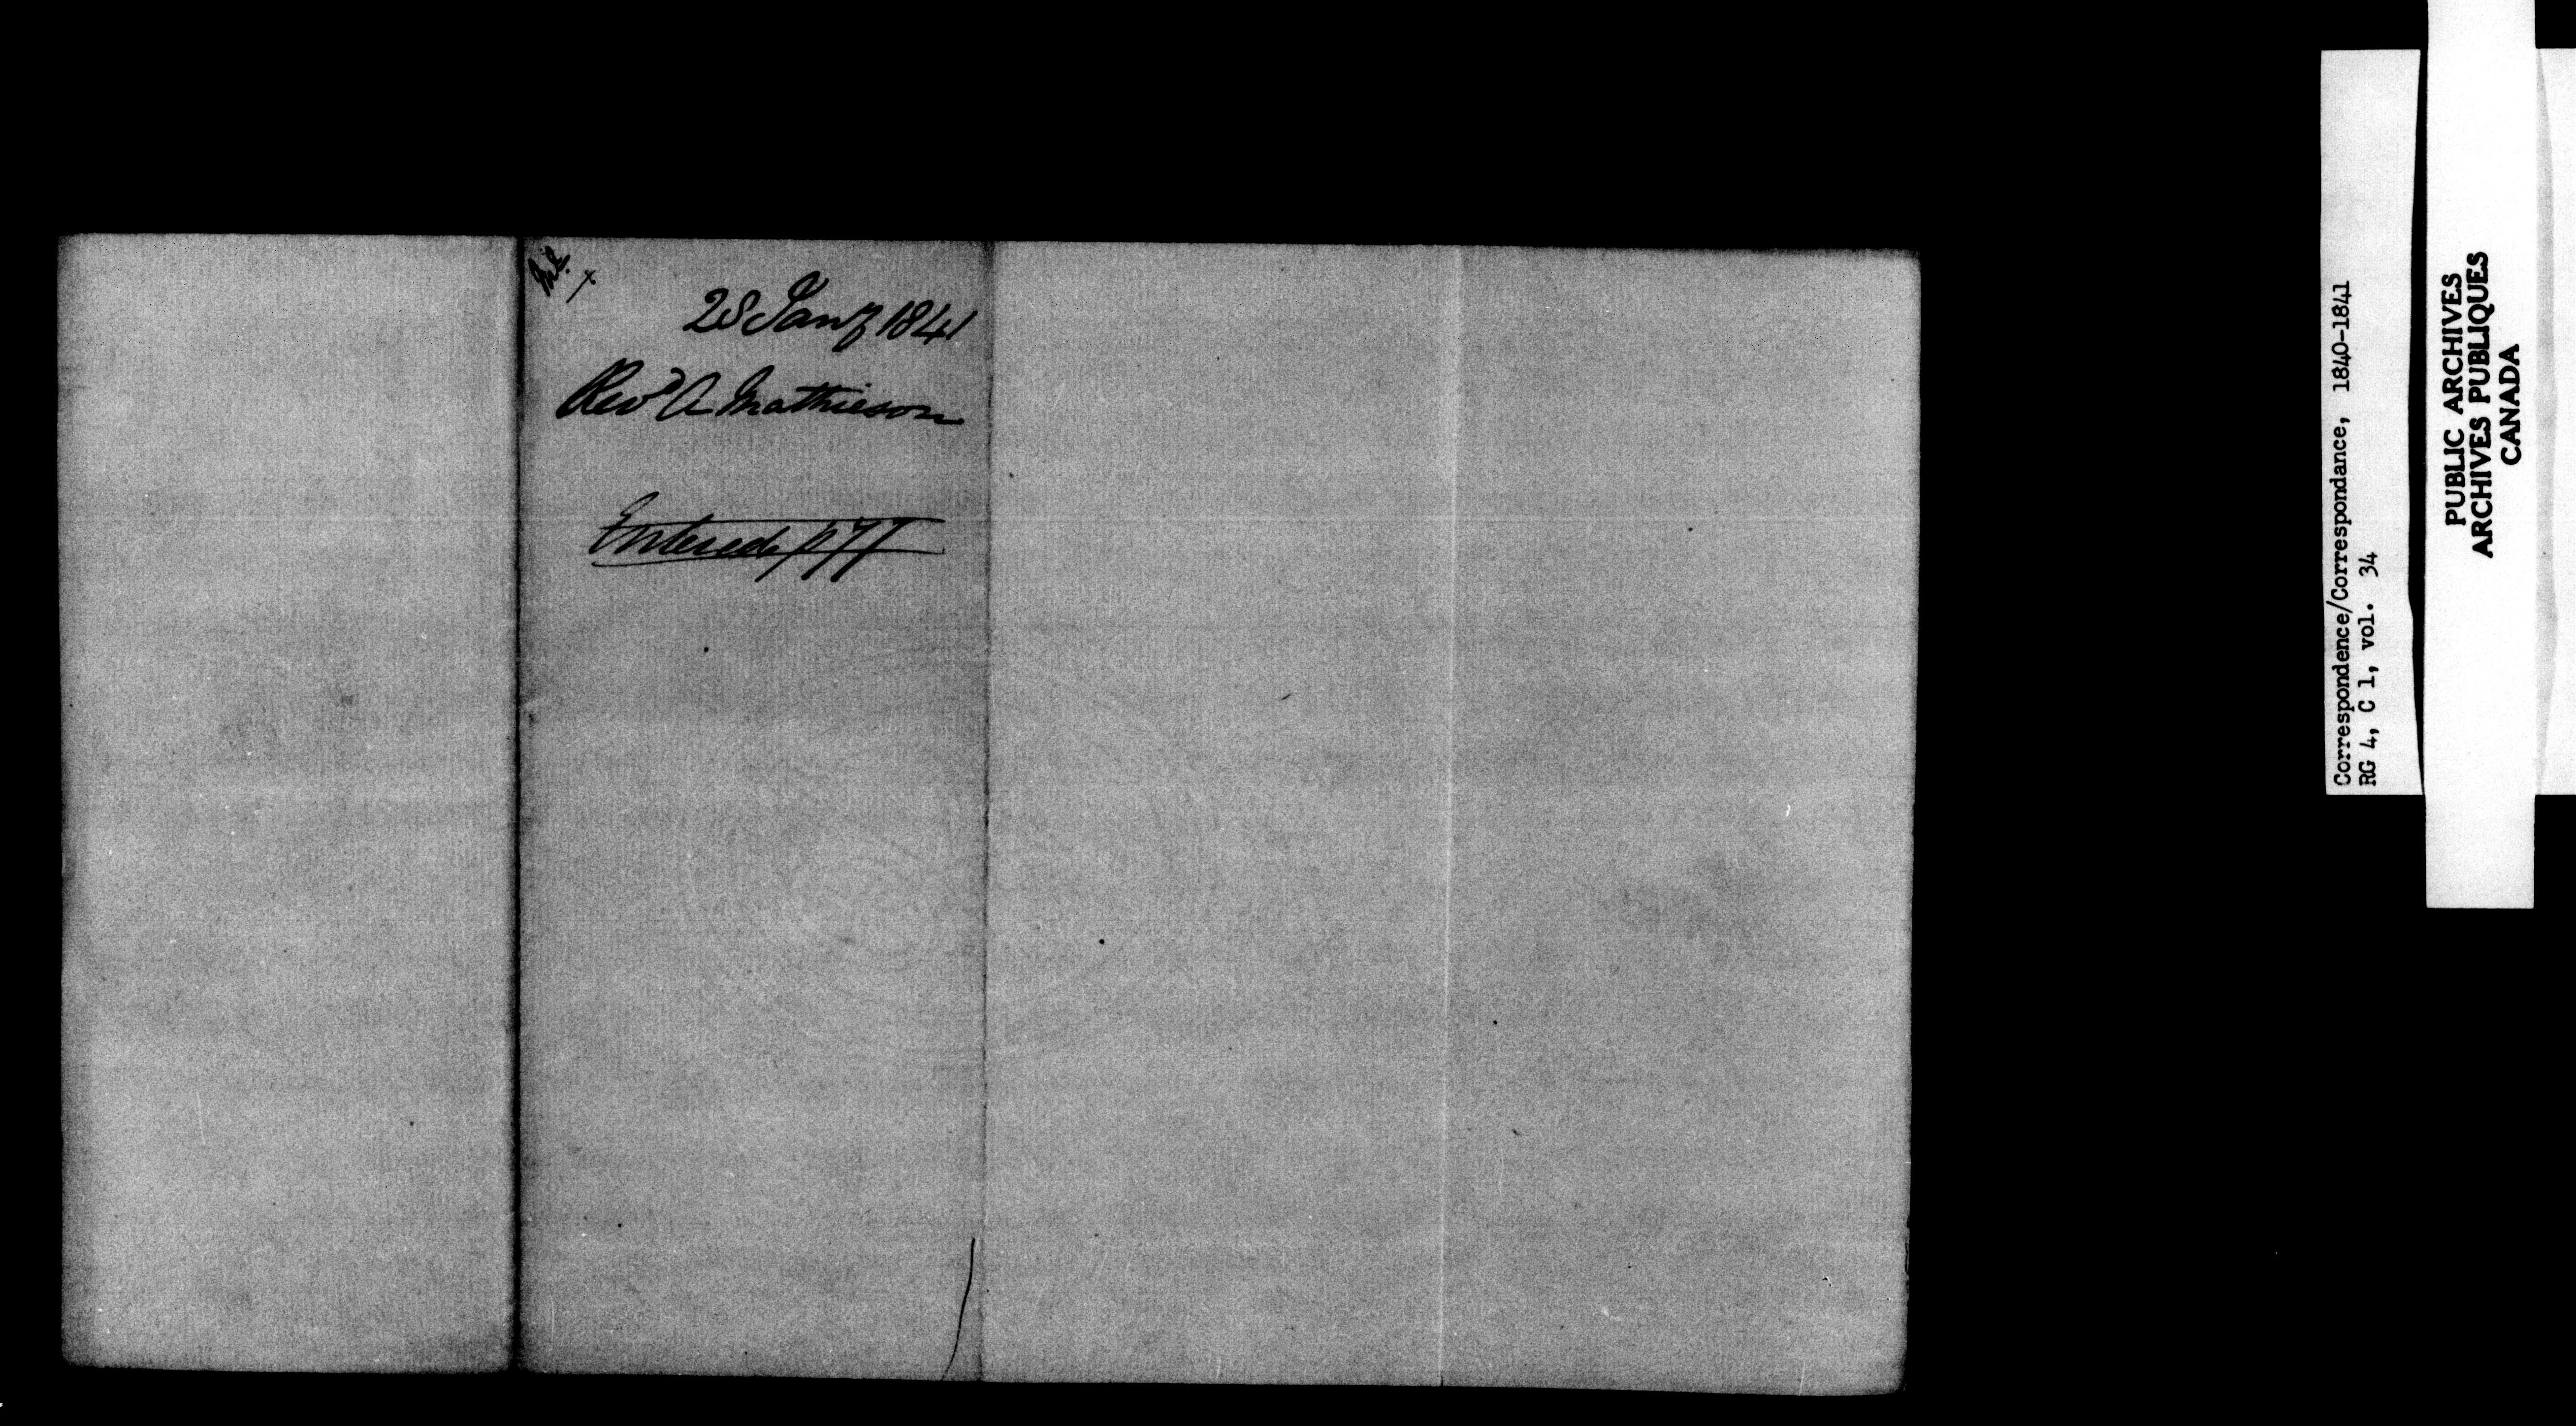 28 Jany 1841
Revd A Mathieson
Entered p 77
Correspondence/Correspondance, 1840-1841
RG 4, C 1, vol. 34
PUBLIC ARCHIVES
ARCHIVES PUBLIQUES
CANADA